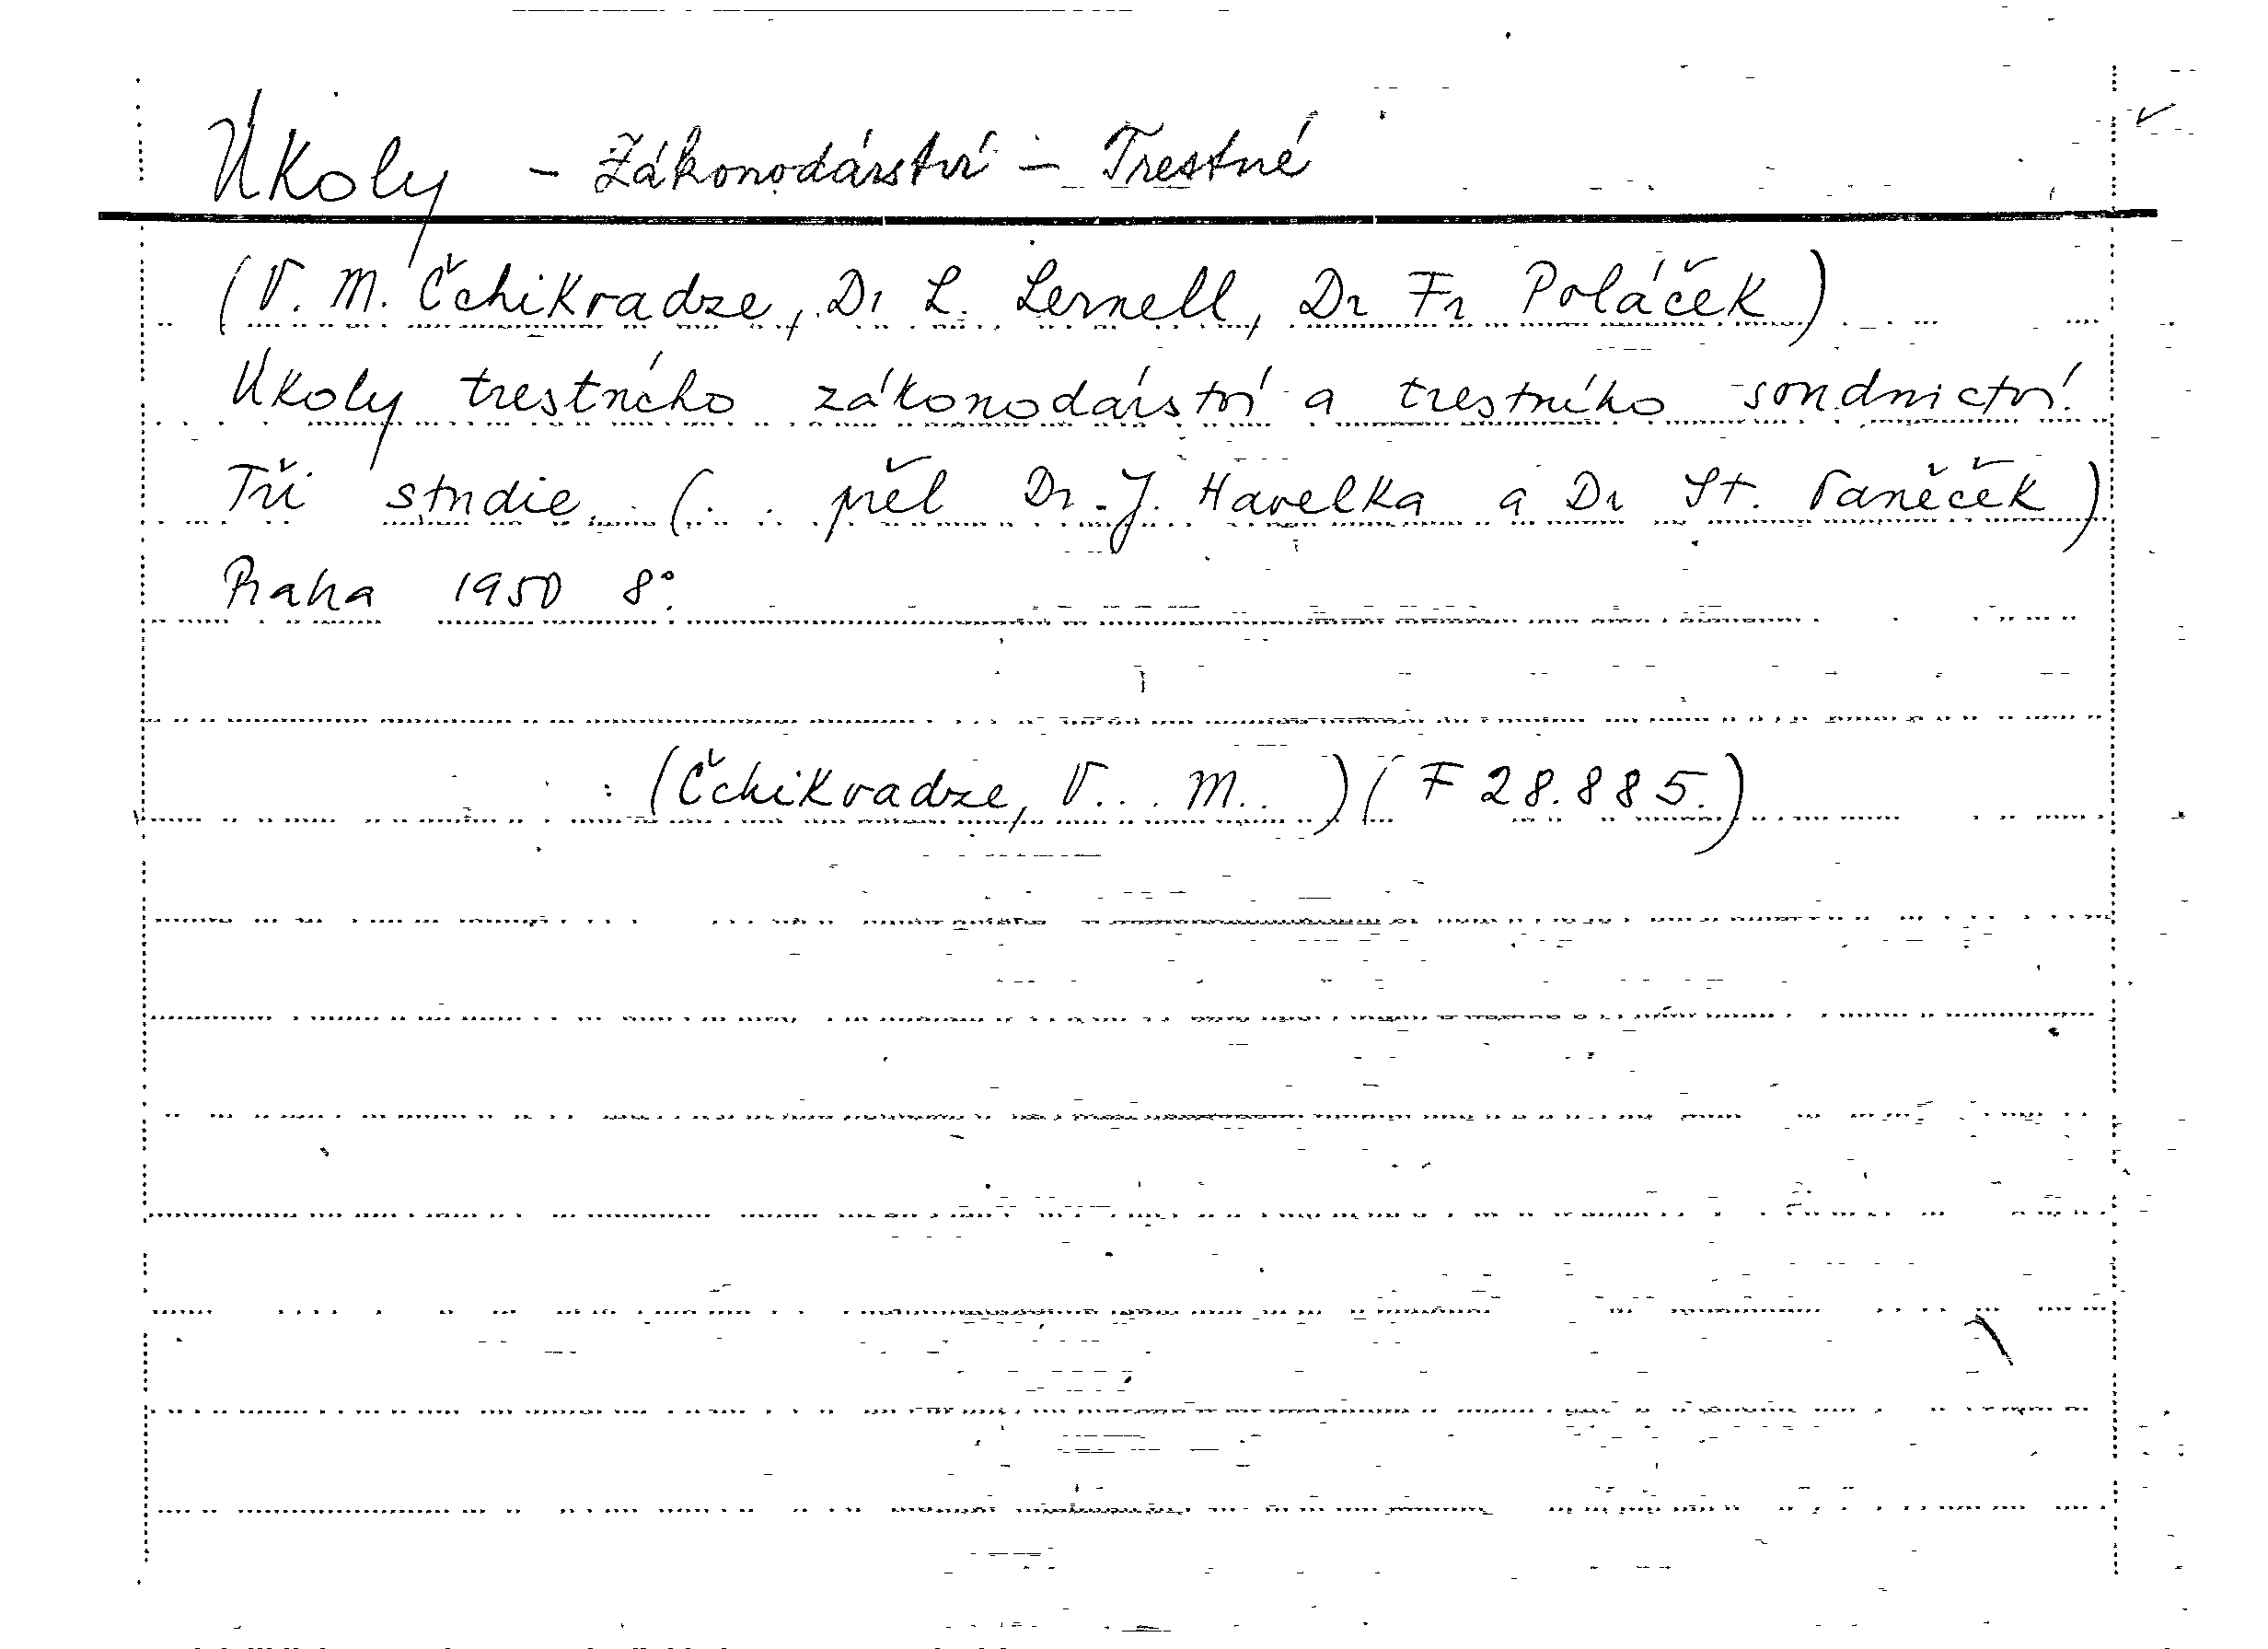 Úkoly - Zákonodárství - Trestné
(V. M. Čchikvadze, Dr L. Lernell, Dr Fr Poláček)
Úkoly trestního zákonodárství a trestního soudnictví.
Tři studie. (. . přel Dr. J. Havelka a Dr St. Vaněček)
Praha 1950 8°.
: (Čchikvadze, V... M.. ) ( F 28.885.)